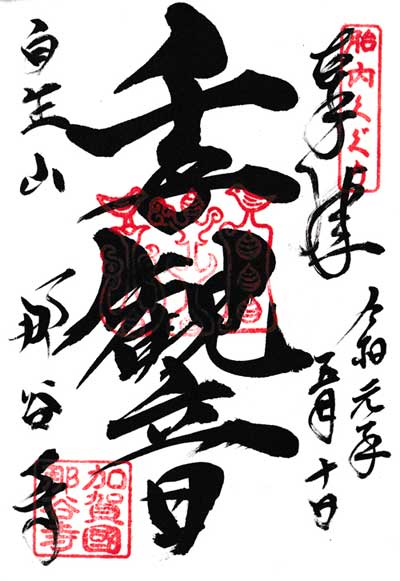 奉拝
胎内くぐり
令和元年
五月十日
千觀音
自生山
那谷寺
加賀國
那谷寺